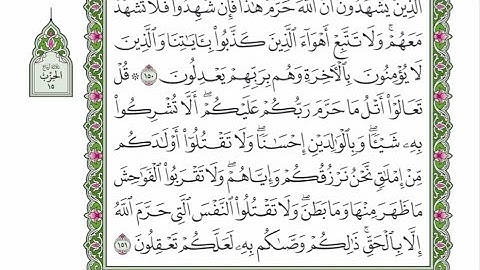 ٱلَّذِينَ يَشْهَدُونَ أَنَّ ٱللَّهَ حَرَّمَ هَٰذَا فَإِن شَهِدُوا۟ فَلَا تَشْهَدْ
مَعَهُمْ وَلَا تَتَّبِعْ أَهْوَآءَ ٱلَّذِينَ كَذَّبُوا۟ بِـَٔايَٰتِنَا وَٱلَّذِينَ
لَا يُؤْمِنُونَ بِٱلْـَٔاخِرَةِ وَهُم بِرَبِّهِمْ يَعْدِلُونَ ١٥٠ ۞ قُلْ
تَعَالَوْا۟ أَتْلُ مَا حَرَّمَ رَبُّكُمْ عَلَيْكُمْ ۖ أَلَّا تُشْرِكُوا۟
بِهِۦ شَيْـًٔا ۖ وَبِٱلْوَٰلِدَيْنِ إِحْسَٰنًا ۖ وَلَا تَقْتُلُوٓا۟ أَوْلَٰدَكُم
مِّنْ إِمْلَٰقٍ ۖ نَّحْنُ نَرْزُقُكُمْ وَإِيَّاهُمْ ۖ وَلَا تَقْرَبُوا۟ ٱلْفَوَٰحِشَ
مَا ظَهَرَ مِنْهَا وَمَا بَطَنَ ۖ وَلَا تَقْتُلُوا۟ ٱلنَّفْسَ ٱلَّتِى حَرَّمَ ٱللَّهُ
إِلَّا بِٱلْحَقِّ ۚ ذَٰلِكُمْ وَصَّىٰكُم بِهِۦ لَعَلَّكُمْ تَعْقِلُونَ ١٥١
الحزب
١٥